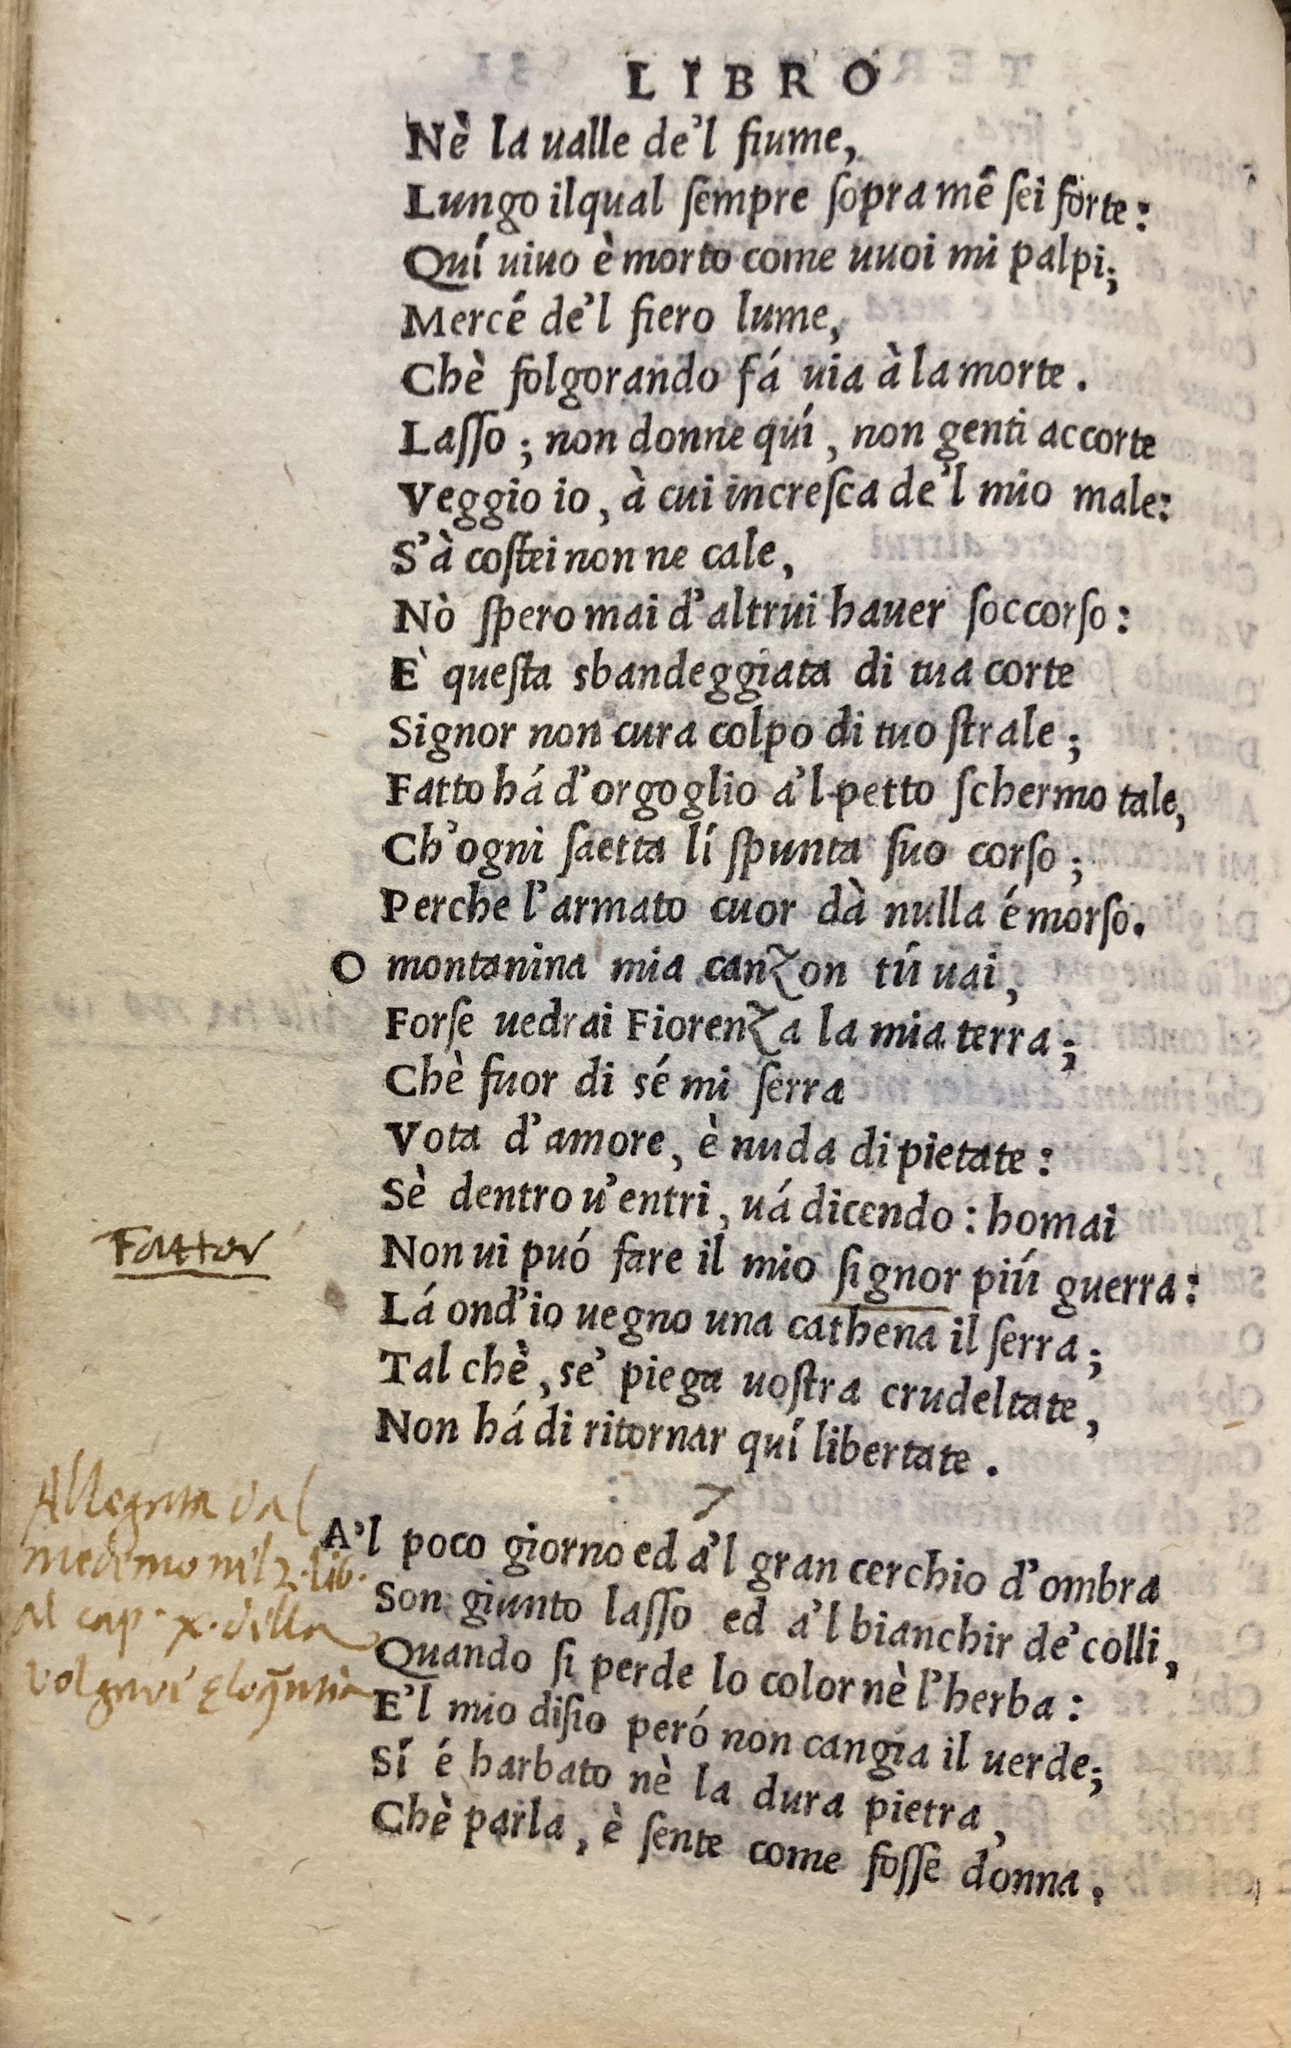 LIBRO
Nè la ualle de'l fiume,
Lungo ilqual sempre sopra mé sei forte:
Quí uiuo è morto come uuoi mi palpi;
Mercé de'l fiero lume,
Chè folgorando fá uia à la morte.
Lasso; non donne quí, non genti accorte
Veggio io, à cui incresca de'l mio male:
S'à costei non ne cale,
Nò spero mai d'altrui hauer soccorso:
E' questa sbandeggiata di tua corte
Signor non cura colpo di tuo strale;
Fatto há d'orgoglio a'l petto schermo tale,
Ch'ogni saetta lí spunta suo corso;
Perche l'armato cuor dà nulla é morso.
O montanina mia canzon tú uai,
Forse uedrai Fiorenza la mia terra;
Chè fuor di sé mi serra
Vota d'amore, è nuda di pietate:
Sè dentro u'entri, uá dicendo: homai
Non ui puó fare il mio signor piú guerra:
Fattor
Lá ond'io uegno una cathena il serra;
Tal chè, se' piega uostra crudeltate,
Non há di ritornar quí libertate.
A'l poco giorno ed a'l gran cerchio d'ombra
Son giunto lasso ed a'l bianchir de' colli,
Quando si perde lo color nè l'herba:
E'l mio disio peró non cangia il uerde;
Sí é barbato nè la dura pietra,
Chè parla, è sente come fosse donna.
Allegata dal
medemo nel 2. lib.
al cap. x. della
volgari